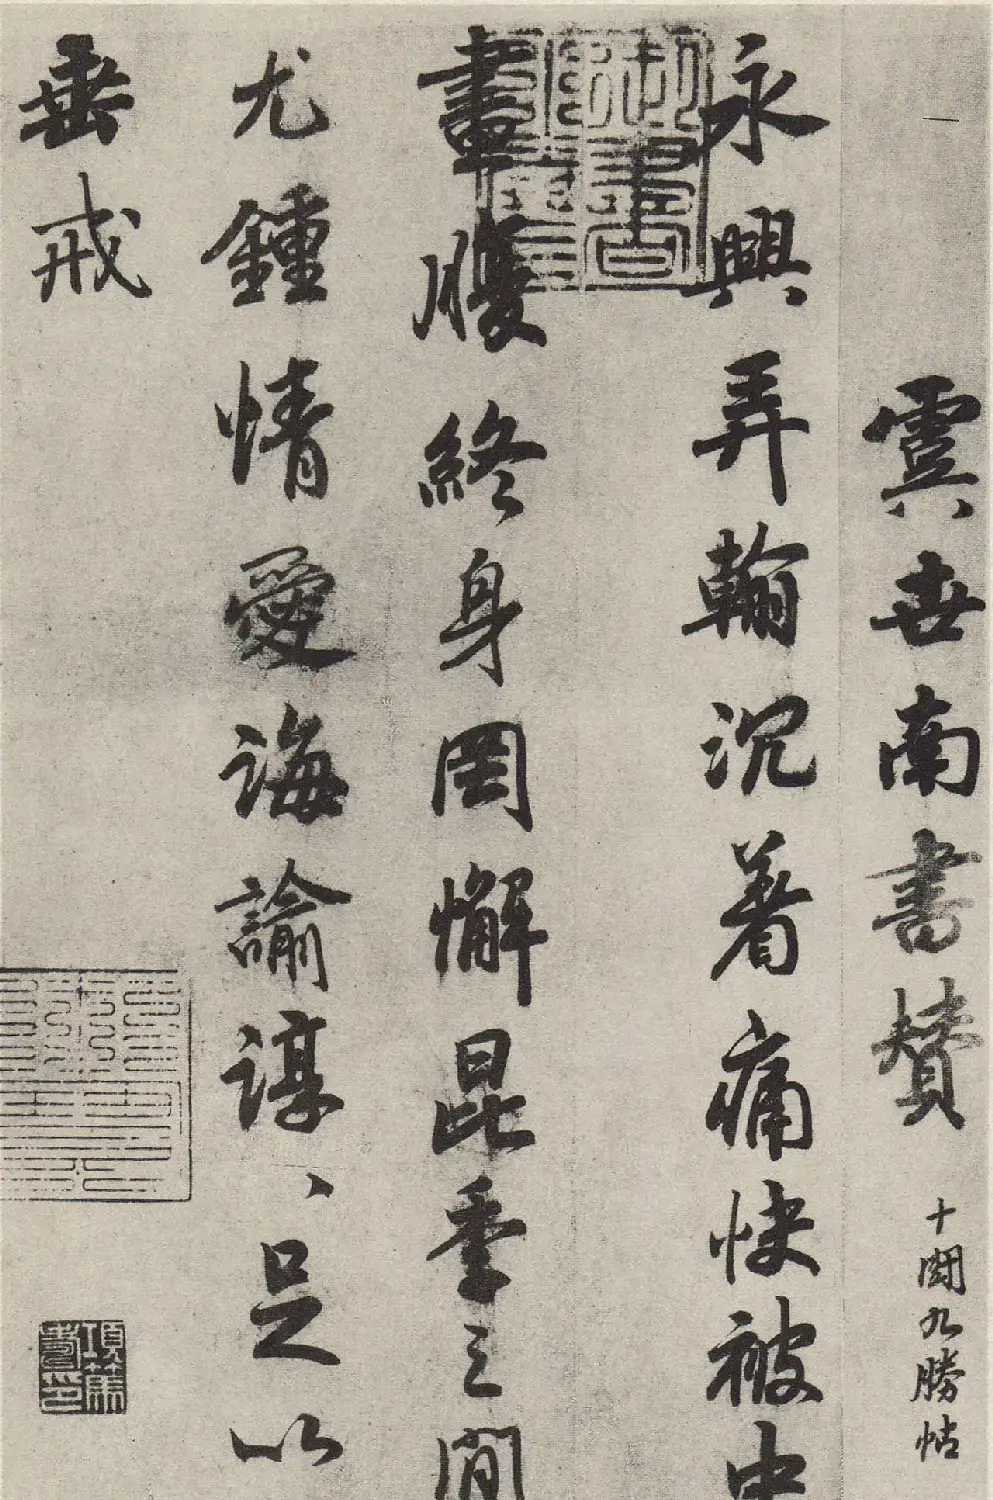 一
虞世南書贊
十鬭九勝帖
永興弄翰沉著痛快被中
畫腹終身罔懈昆季之間
尤鍾情愛誨諭諄、足以
垂戒
御書